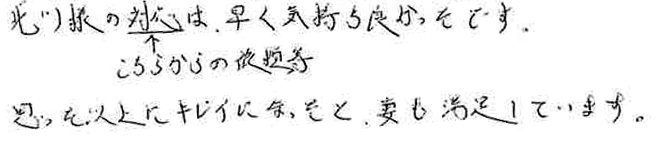 北川様の対応は、早く気持ち良かったです。
↑
こちらからの依頼等
思った以上にキレイになったと、妻も満足しています。